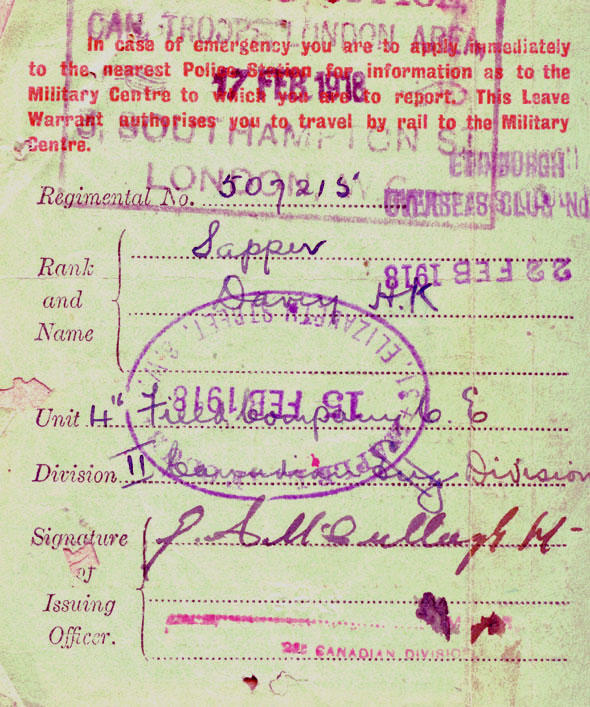 CAN. TROOPS LONDON AREA,
In case of emergency you are to apply immediately
to the nearest Police Station for information as to the
17 FEB 1918
Military Centre to which you are to report. This Leave
Warrant authorises you to travel by rail to the Military
Centre.
SOUTHAMPTON ST
LONDON, W.C.
EDINBURGH
OVERSEAS CLUB
Regimental No. 507215
Sapper
22 FEB 1918
Rank
and
Name
Davey H.K
ELIZABETH STREET, S.W.
15 FEB 1918
Unit 4" Field Company C E
Division II Canadian Division
Signature
of
Issuing
Officer.
CANADIAN DIVISION